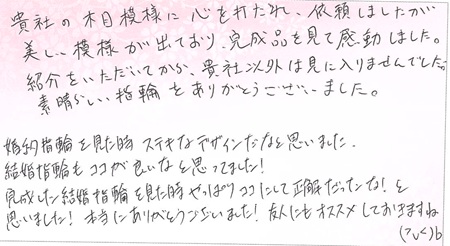 貴社の木目模様に心を打たれ、依頼しましたが
美しい模様が出ており、完成品を見て感動しました。
紹介をいただいてから、貴社以外は目に入りませんでした。
素晴らしい指輪をありがとうございました。
婚約指輪を見た時 ステキなデザインだなと思いました.
結婚指輪も ココが良いなと思ってました!
完成した結婚指輪を見た時 やっぱり ココにして正解だったな!と
思いました! 本当にありがとうございました! 友人にも オススメしておきますね